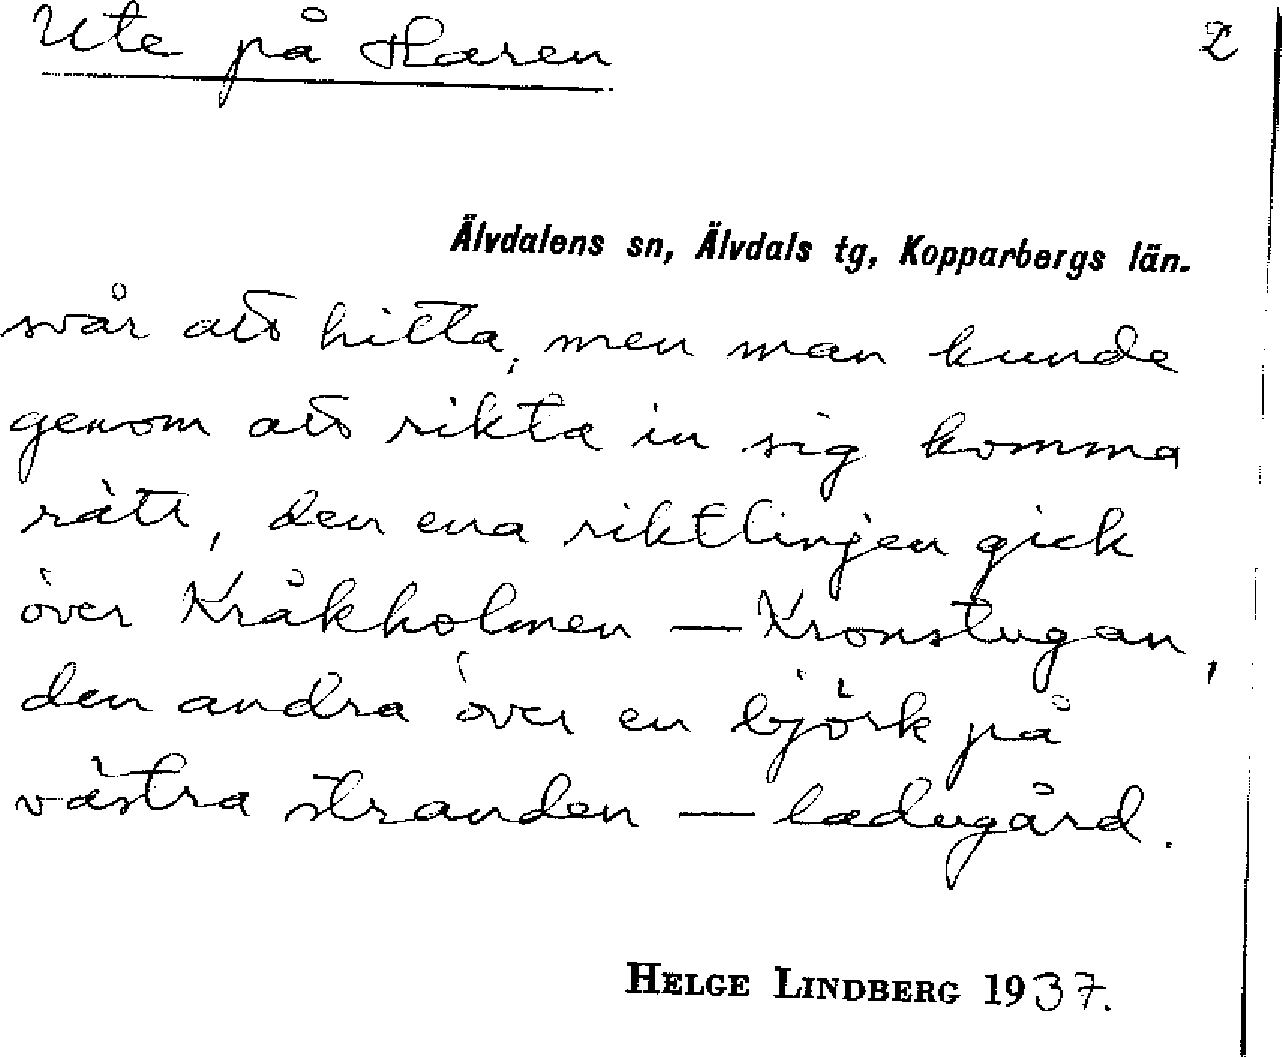 Ute på Haren 2
Älvdalens sn, Älvdals tg, Kopparbergs län.
svår att hitta, men man kunde
genom att rikta in sig komma
rätt, den ena riktlinjen gick
över Kråkholmen — Kronstugan,
den andra över en björk på
västra stranden — ladugård.
HELGE LINDBERG 1937.